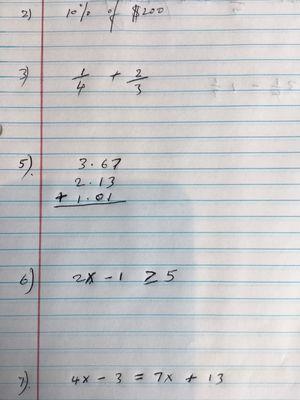 2) 10% of $200
3) 1/4 + 2/3
5). 3.67
2.13
+ 1.01
6) 2x - 1 ≥ 5
7). 4x - 3 = 7x + 13